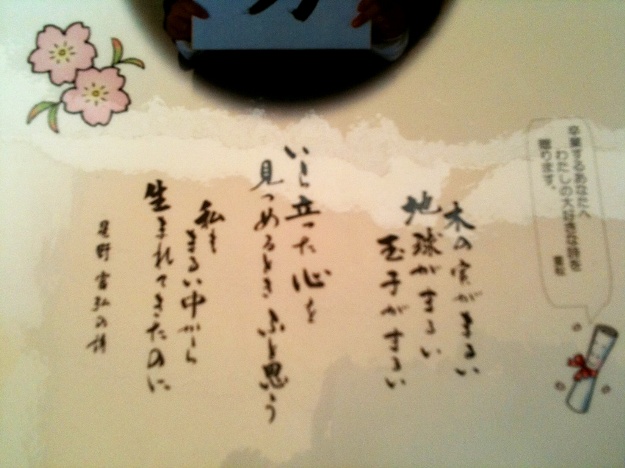 卒業するあなたへ
わたしの大好きな詩を
贈ります。
木の実がまるい
地球がまるい
玉子がまるい
いら立った心を
見つめるとき ふと思う
私も
まるい中から
生まれてきたのに
星野富弘の詩